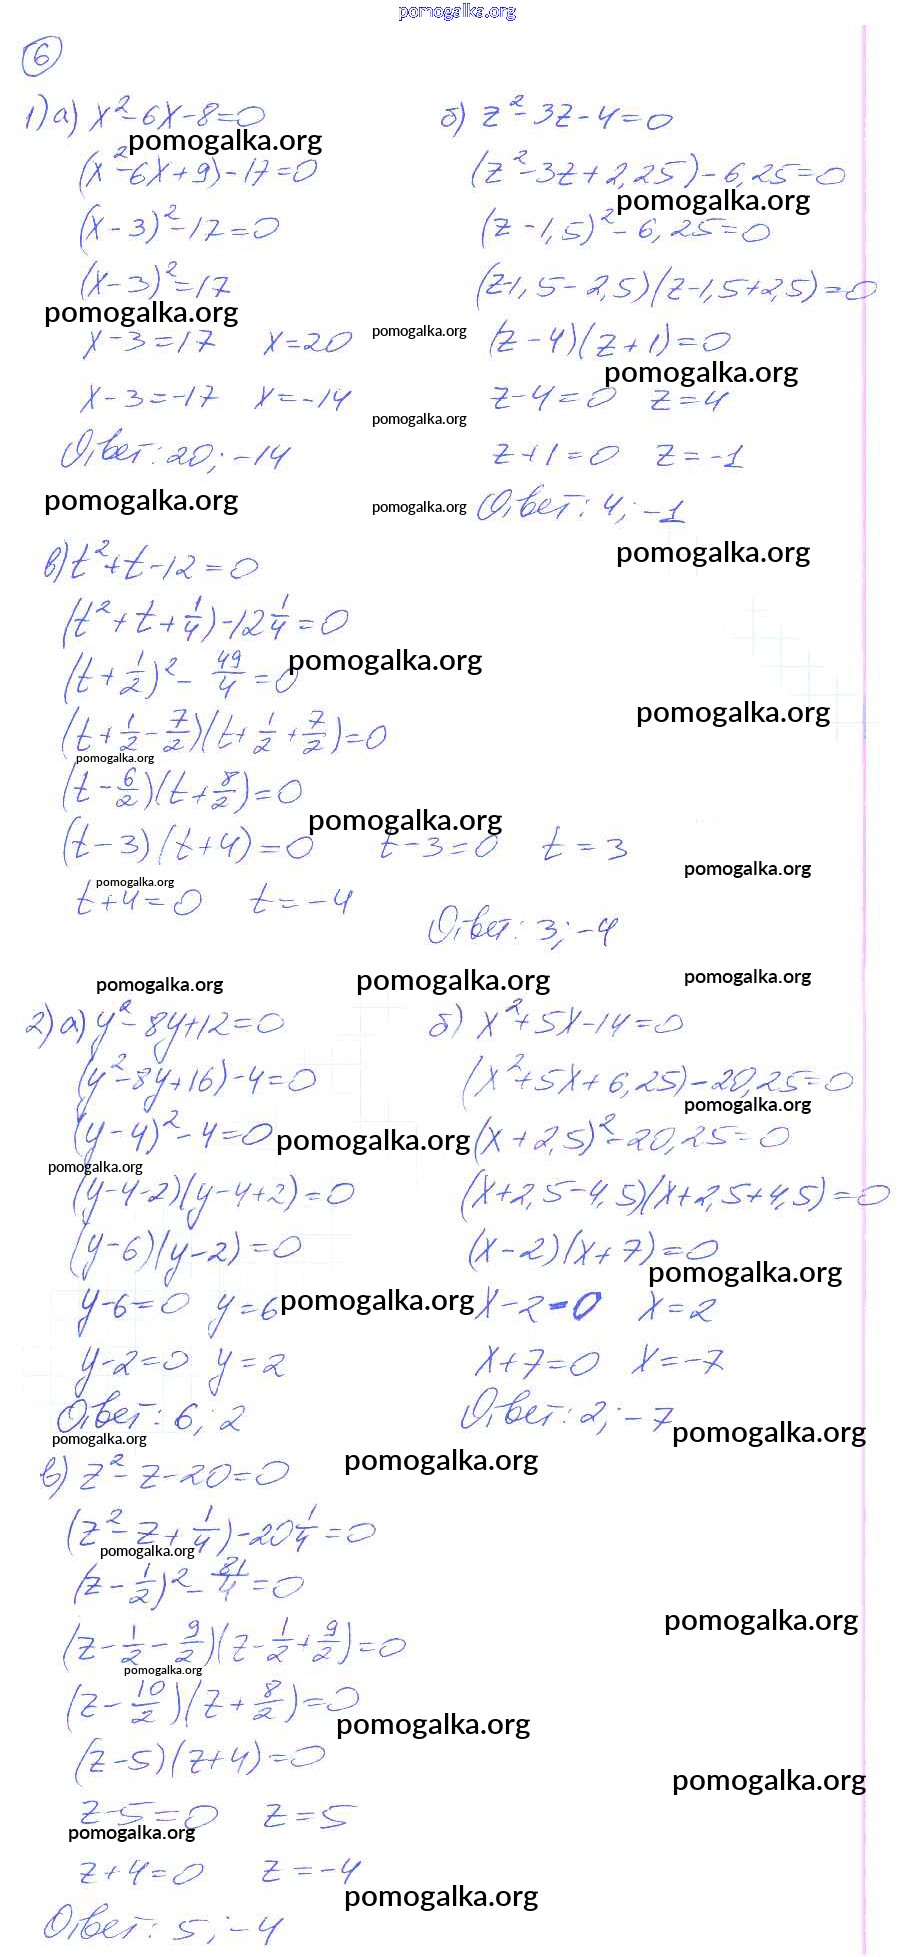 pomogalka.org
6
1) а) x²-6x-8=0
pomogalka.org
(x²-6x+9)-17=0
(x-3)²-17=0
(x-3)²=17
pomogalka.org
x-3=17 x=20
pomogalka.org
x-3=-17 x=-14
pomogalka.org
Ответ: 20; -14
pomogalka.org
pomogalka.org
б) z²-3z-4=0
(z²-3z+2,25)-6,25=0
pomogalka.org
(z-1,5)²-6,25=0
(z-1,5-2,5)(z-1,5+2,5)=0
(z-4)(z+1)=0
pomogalka.org
z-4=0 z=4
z+1=0 z=-1
Ответ: 4; -1
pomogalka.org
в) t²+t-12=0
(t²+t+1/4)-12 1/4=0
(t+1/2)²-49/4=0
pomogalka.org
pomogalka.org
(t+1/2-7/2)(t+1/2+7/2)=0
pomogalka.org
(t-6/2)(t+8/2)=0
pomogalka.org
(t-3)(t+4)=0 t-3=0 t=3
pomogalka.org
pomogalka.org
t+4=0 t=-4
Ответ: 3; -4
pomogalka.org
pomogalka.org
pomogalka.org
2) а) y²-8y+12=0
(y²-8y+16)-4=0
(y-4)²-4=0
pomogalka.org
pomogalka.org
(y-4-2)(y-4+2)=0
(y-6)(y-2)=0
y-6=0 y=6
pomogalka.org
y-2=0 y=2
Ответ: 6; 2
pomogalka.org
б) x²+5x-14=0
(x²+5x+6,25)-20,25=0
pomogalka.org
(x+2,5)²-20,25=0
(x+2,5-4,5)(x+2,5+4,5)=0
(x-2)(x+7)=0
pomogalka.org
x-2=0 x=2
x+7=0 x=-7
Ответ: 2; -7
pomogalka.org
pomogalka.org
в) z²-z-20=0
(z²-z+1/4)-20 1/4=0
pomogalka.org
(z-1/2)²-81/4=0
pomogalka.org
(z-1/2-9/2)(z-1/2+9/2)=0
pomogalka.org
(z-10/2)(z+8/2)=0
pomogalka.org
(z-5)(z+4)=0
pomogalka.org
z-5=0 z=5
pomogalka.org
z+4=0 z=-4
pomogalka.org
Ответ: 5; -4